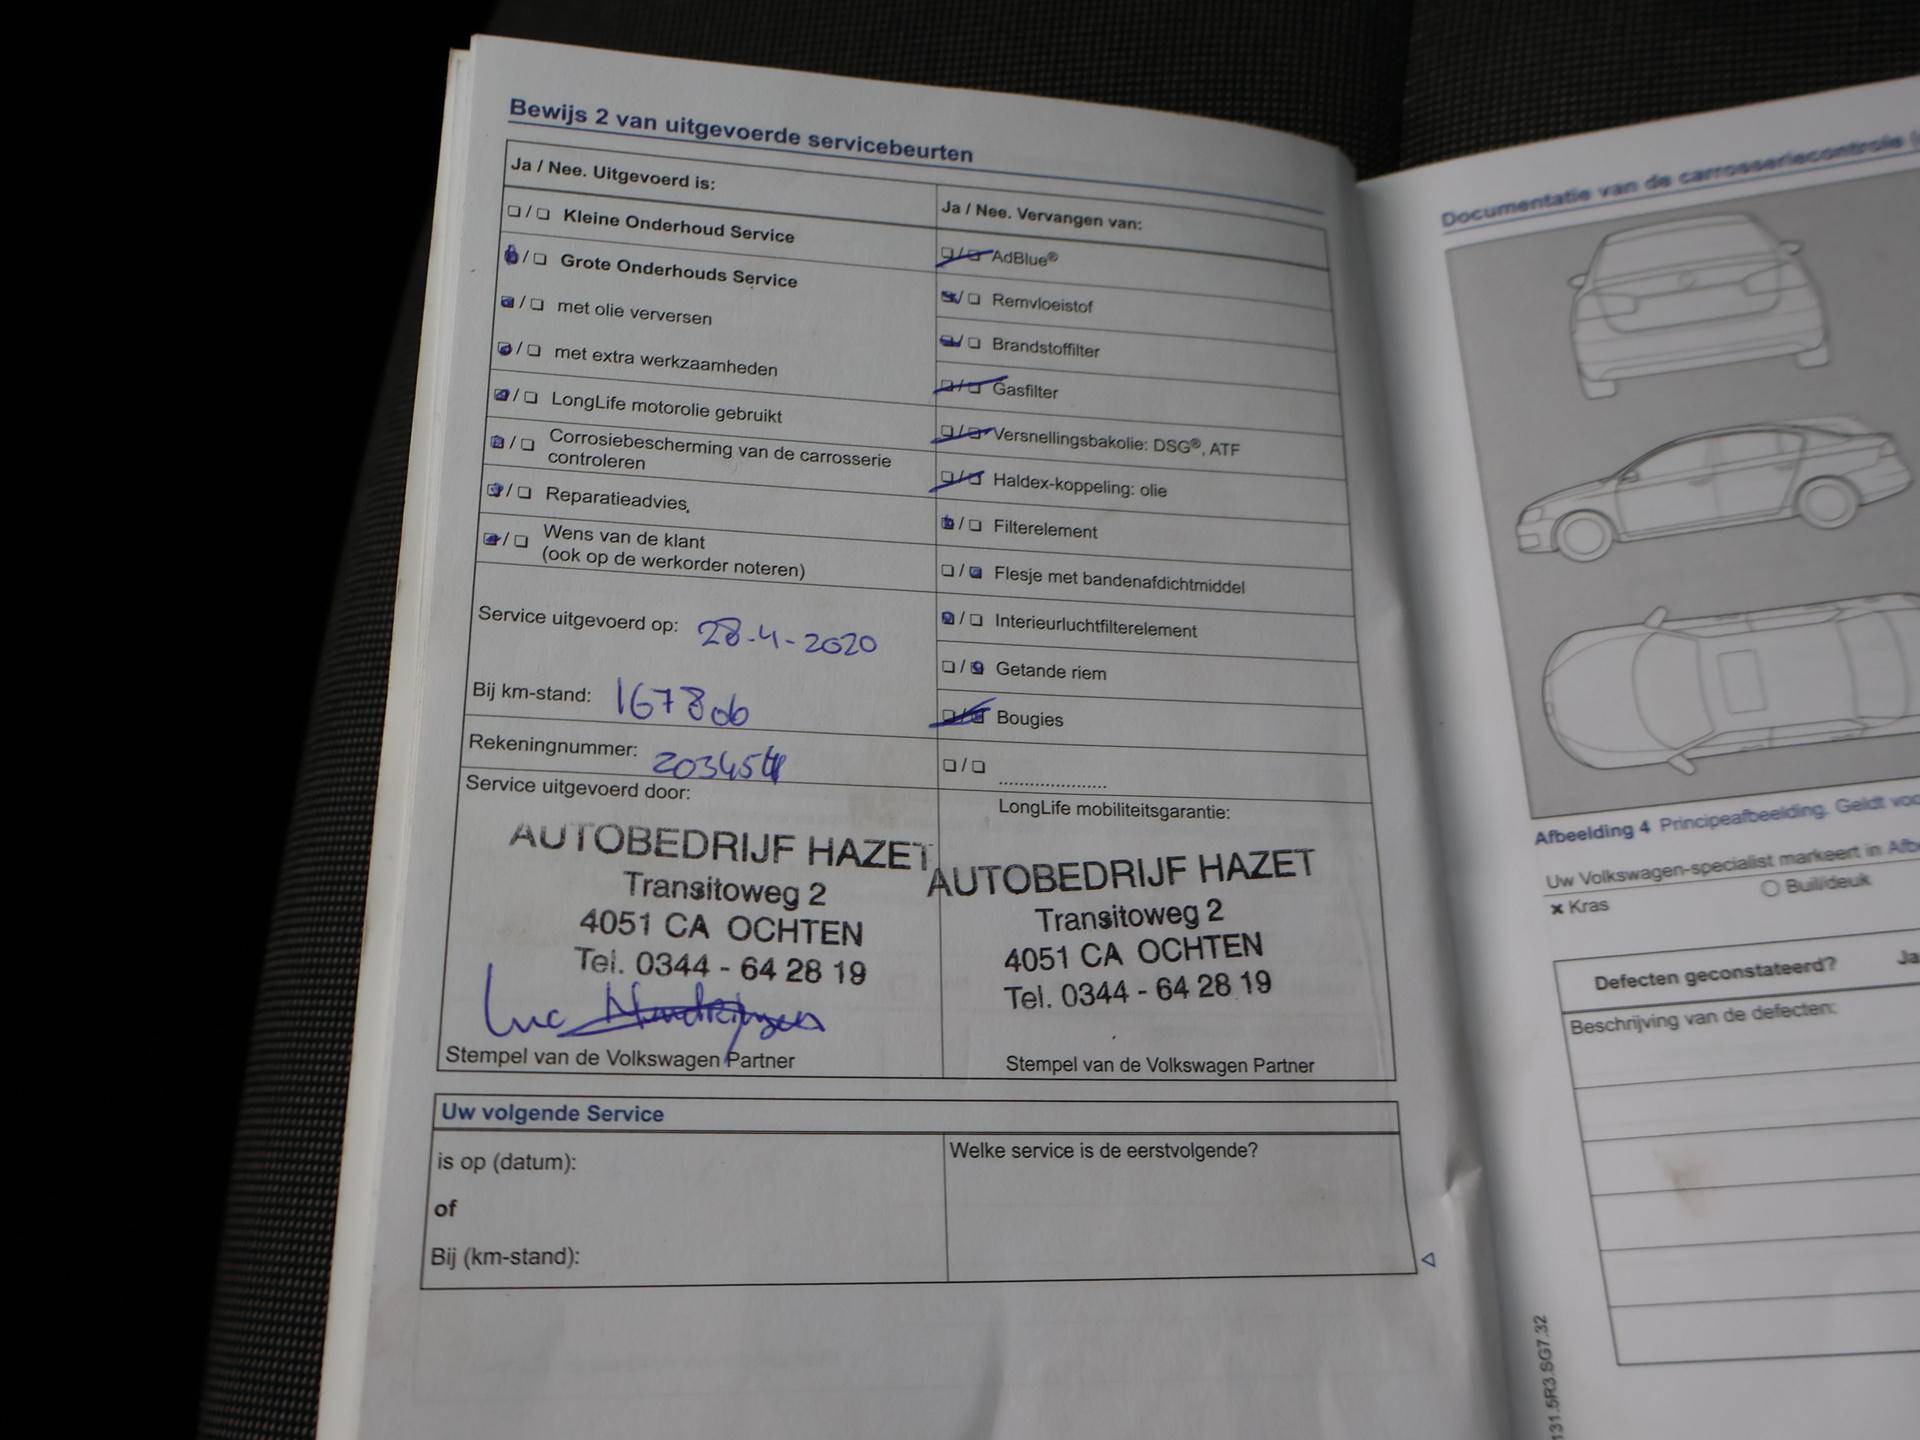 Bewijs 2 van uitgevoerde servicebeurten
Ja / Nee. Uitgevoerd is:
Kleine Onderhoud Service
Grote Onderhouds Service
met olie verversen
met extra werkzaamheden
LongLife motorolie gebruikt
Corrosiebescherming van de carrosserie
controleren
Reparatieadvies
Wens van de klant
(ook op de werkorder noteren)
Service uitgevoerd op: 28-4-2020
Bij km-stand:
Rekeningnummer:
Service uitgevoerd door:
AUTOBEDRIJF HAZET
Transitoweg 2
4051 CA OCHTEN
Tel. 0344 - 64 28 19
Luc
Stempel van de Volkswagen Partner
Ja / Nee. Vervangen van:
AdBlue®
Remvloeistof
Brandstoffilter
Gasfilter
Versnellingsbakolie: DSG®, ATF
Haldex-koppeling: olie
Filterelement
Flesje met bandenafdichtmiddel
Interieurluchtfilterelement
Getande riem
Bougies
LongLife mobiliteitsgarantie:
AUTOBEDRIJF HAZET
Transitoweg 2
4051 CA OCHTEN
Tel. 0344 - 64 28 19
Stempel van de Volkswagen Partner
Uw volgende Service
is op (datum):
of
Bij (km-stand):
Welke service is de eerstvolgende?
Documentatie van de carrosseriecontrole
Afbeelding 4 Principeafbeelding. Geldt
Uw Volkswagen-specialist markeert in
× Kras
Buil/deuk
Defecten geconstateerd? Ja
Beschrijving van de defecten:
131.5R3.SG7.32